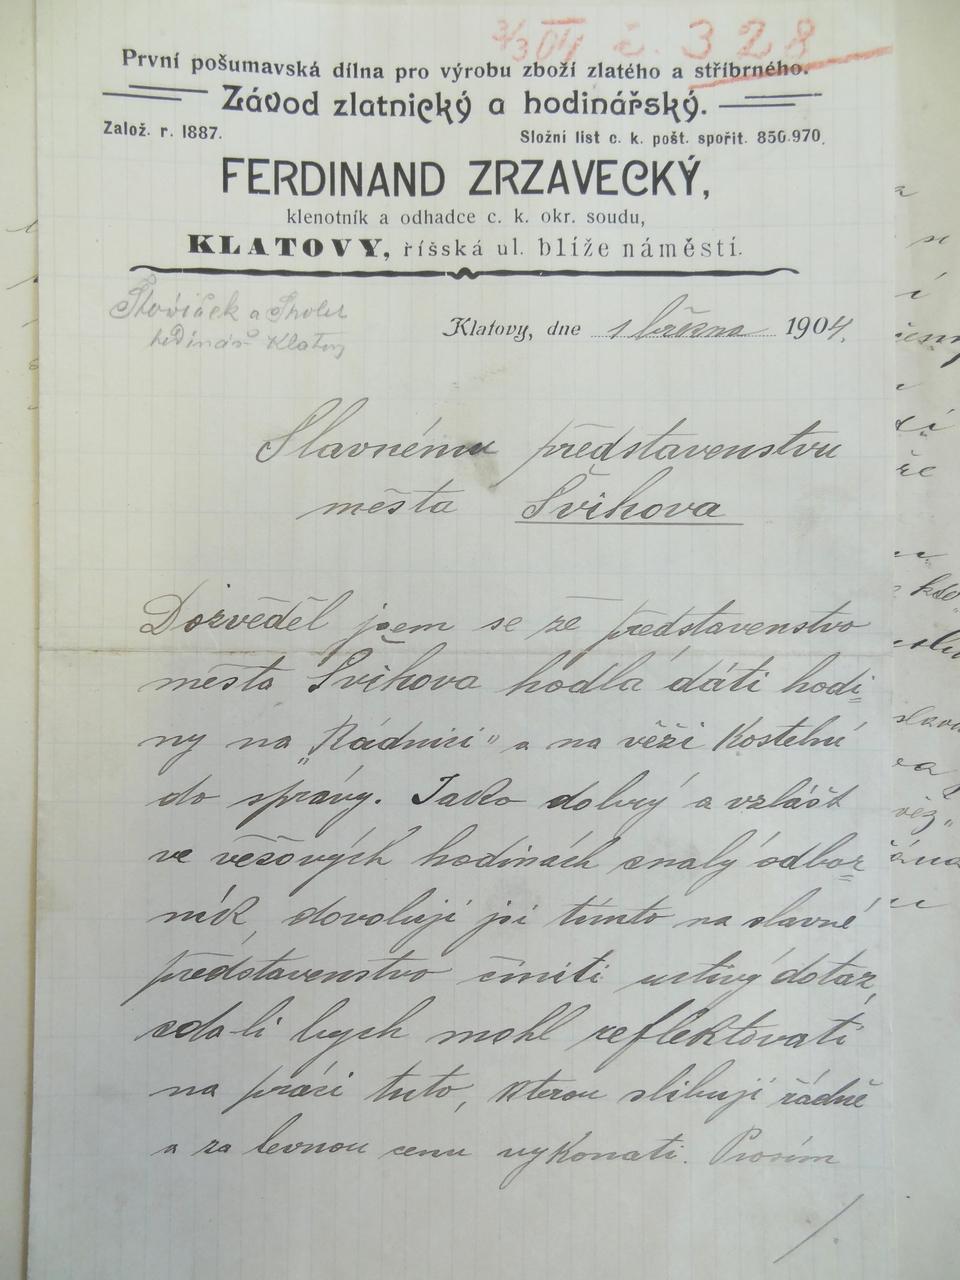 3/3 04 č. 328
První pošumavská dílna pro výrobu zboží zlatého a stříbrného.
Závod zlatnický a hodinářský.
Založ. r. 1887.
Složní list c. k. pošt. spořit. 850.970.
FERDINAND ZRZAVECKÝ,
klenotník a odhadce c. k. okr. soudu,
KLATOVY, říšská ul. blíže náměstí.
hodinář Klatovy
Klatovy, dne 1 března 1904.
Slavnému představenstvu
města Švihova
Dozvěděl jsem se že představenstvo
města Švihova hodlá dáti hodi=
ny na „Rádnici" a na věži kostelní
do správy. Jako dobrý a vzlášt
ve věžových hodinách znalý odbor=
ník, dovoluji jsi tímto na slavné
představenstvo činiti uctivý dotaz,
zda-li bych mohl reflektovati
na práci tuto, kterou slibuji řádně
a za levnou cenu vykonati. Prosím
/.